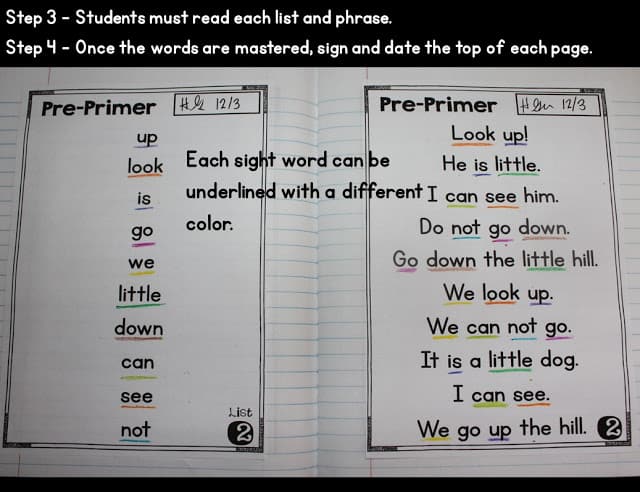 Step 3 - Students must read each list and phrase.
Step 4 - Once the words are mastered, sign and date the top of each page.
Pre-Primer
12/3
up
look
is
go
we
little
down
can
see
not
List
2
Each sight word can be
underlined with a different
color.
Pre-Primer
12/3
Look up!
He is little.
I can see him.
Do not go down.
Go down the little hill.
We look up.
We can not go.
It is a little dog.
I can see.
We go up the hill.
2